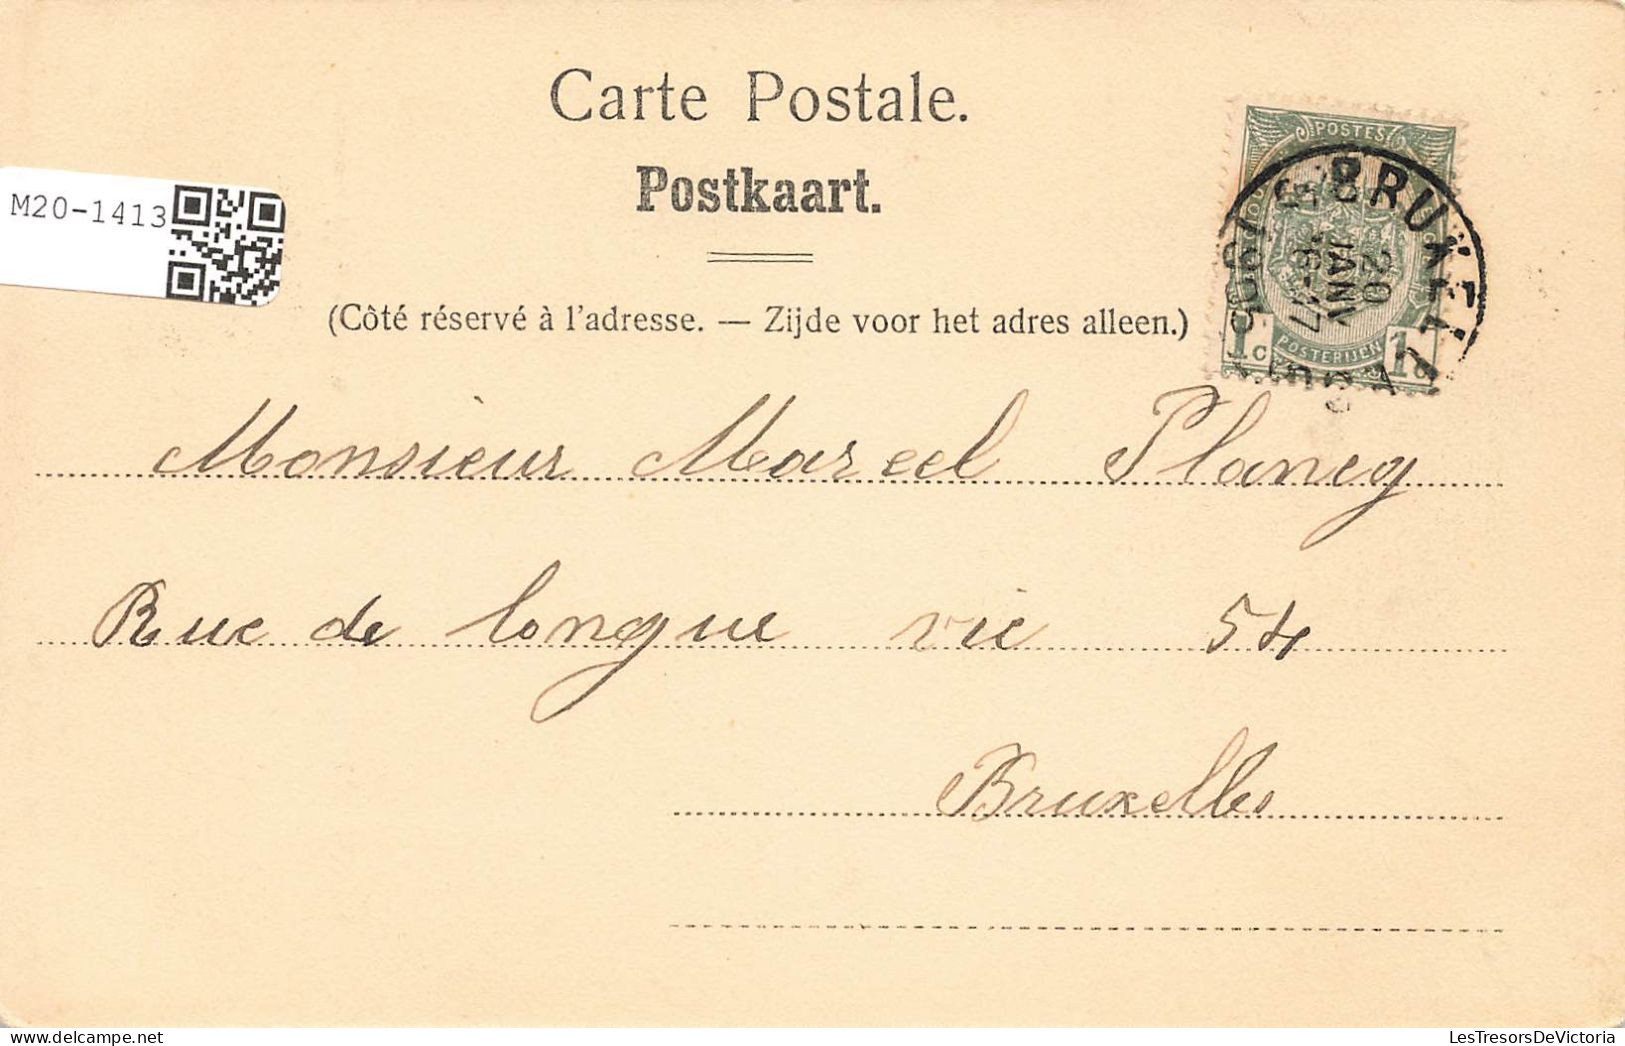 Carte Postale.
Postkaart.
M20-1413
(Côté réservé à l'adresse. — Zijde voor het adres alleen.)
POSTES
BRUXELLES
20
JANV
16-17
1c
POSTERIJEN
1c
Monsieur Marcel Plancq
Rue de longue vie 54
Bruxelles
LesTresorsDeVictoria